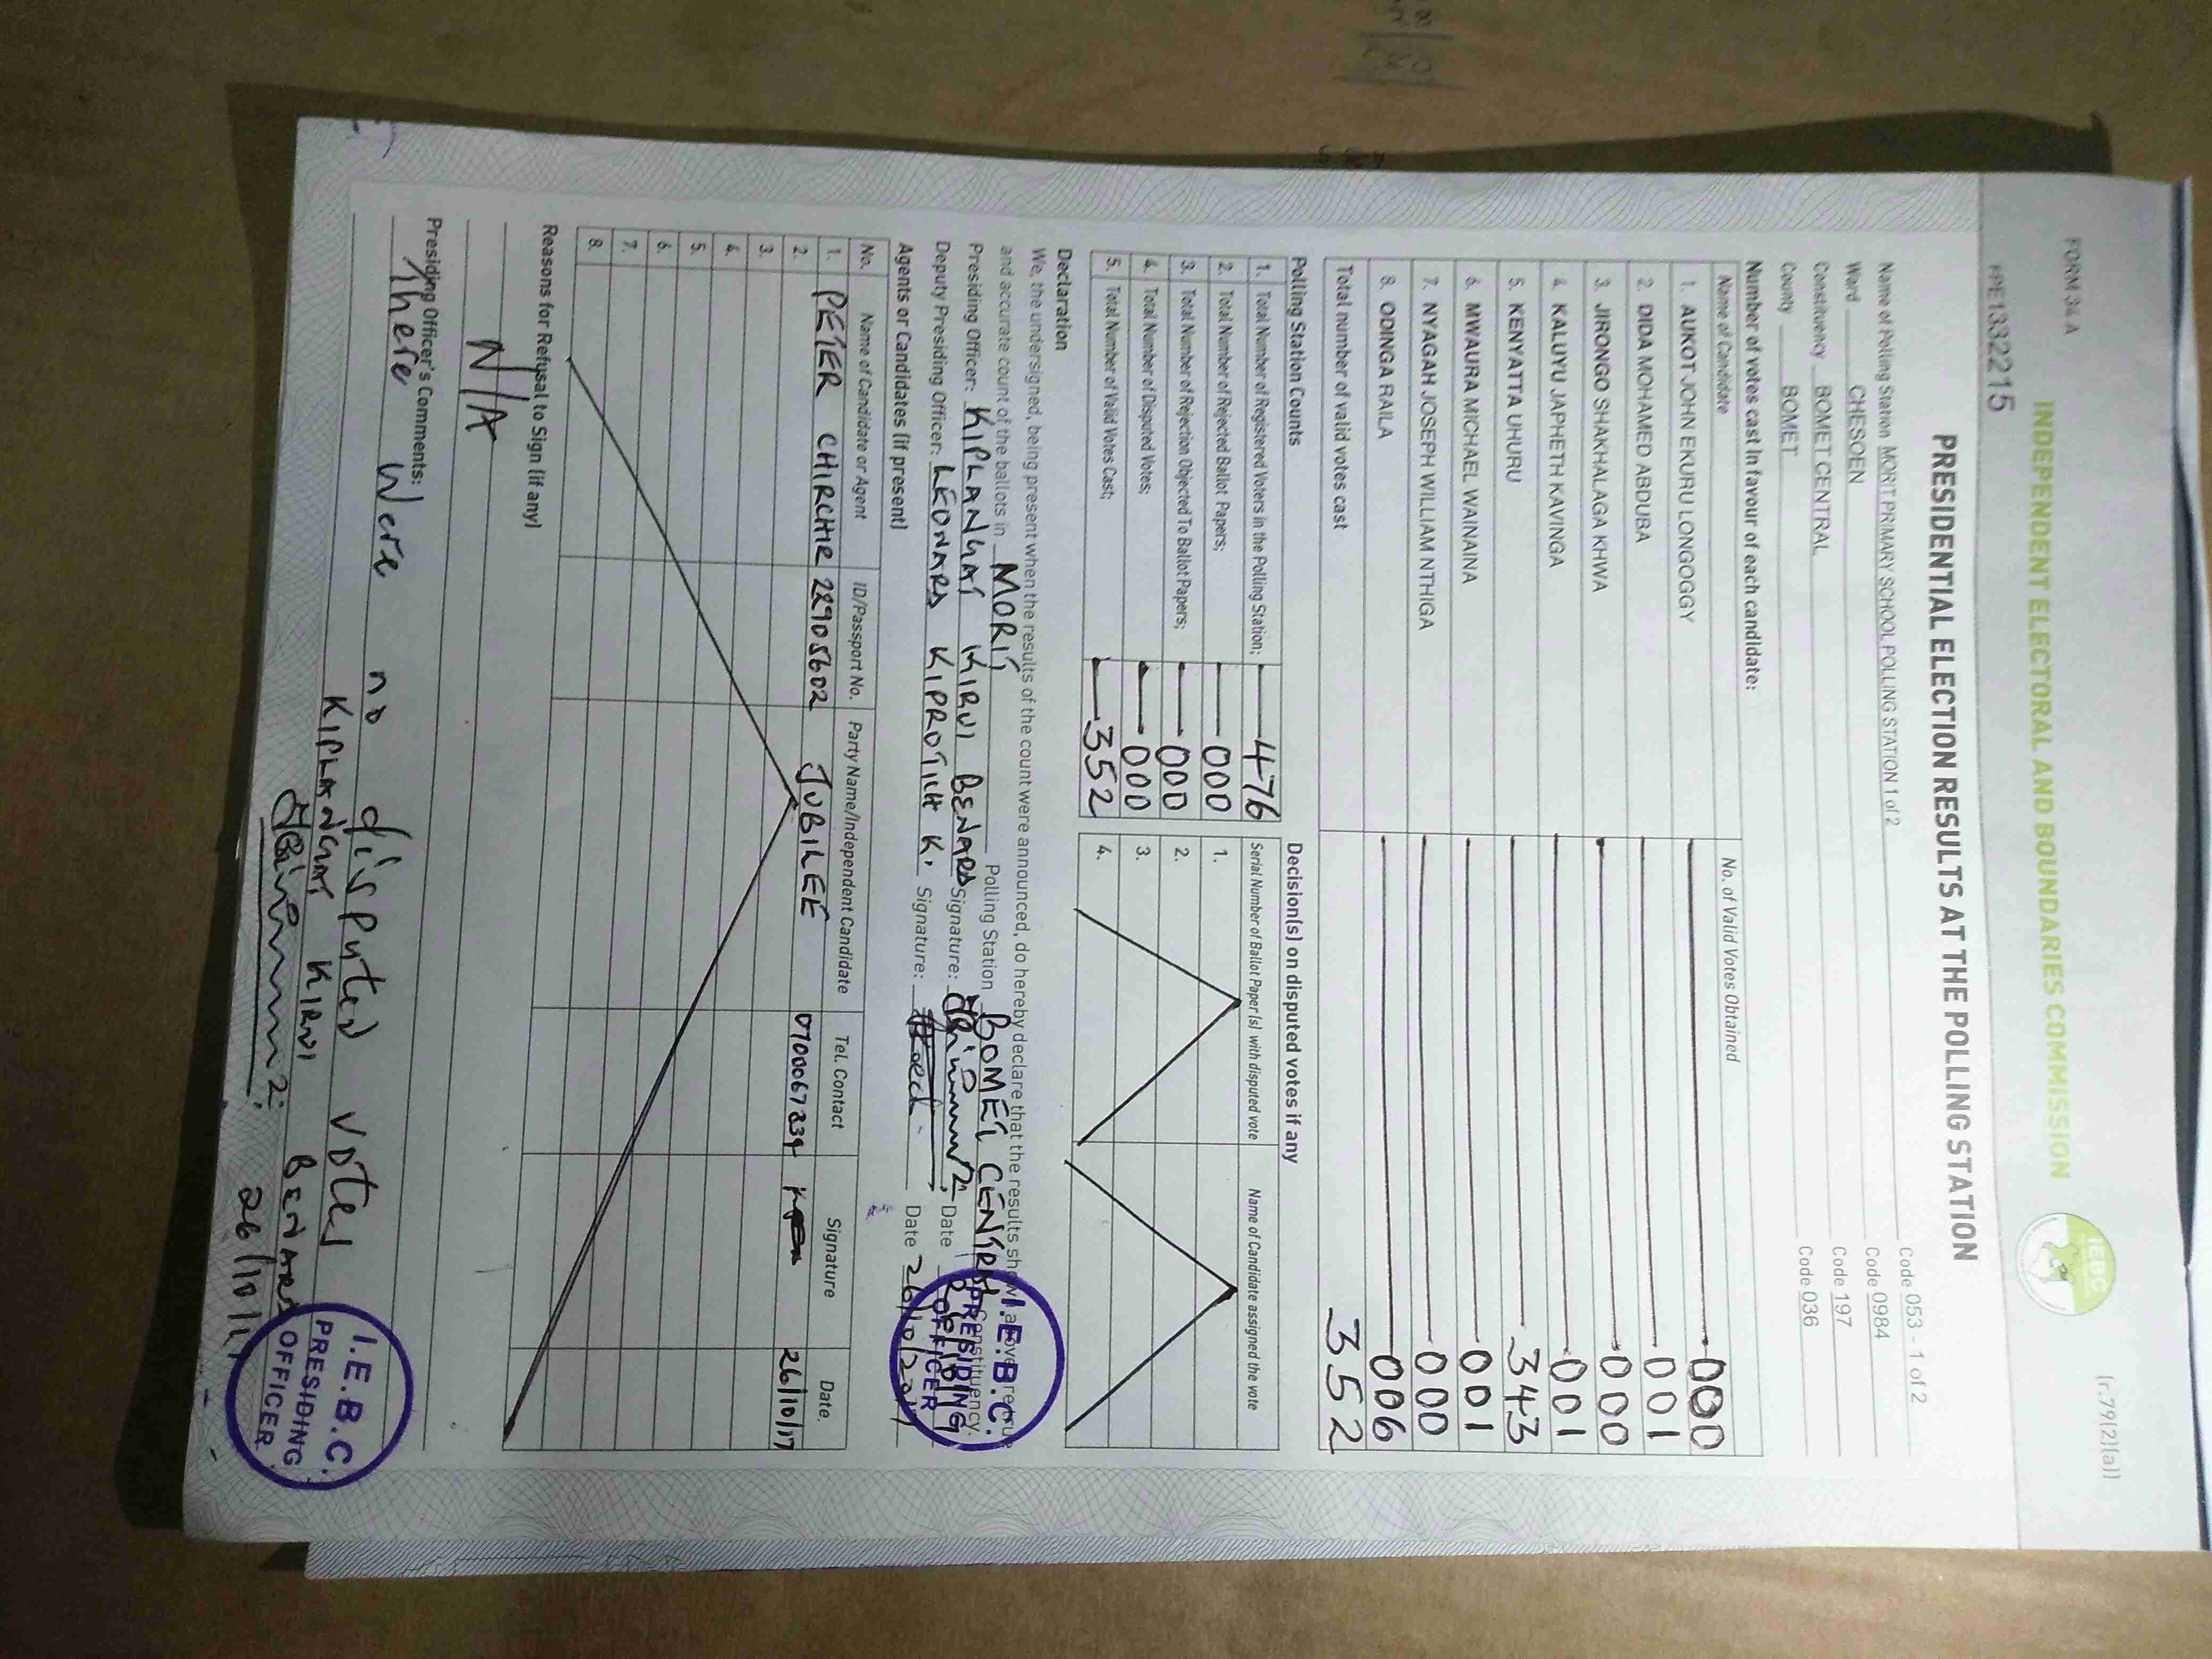 FORM 34 A
(r.79(2)(a))
INDEPENDENT ELECTORAL AND BOUNDARIES COMMISSION
IEBC
PRE1332215
PRESIDENTIAL ELECTION RESULTS AT THE POLLING STATION
Name of Polling Station MORIT PRIMARY SCHOOL POLLING STATION 1 of 2 Code 053 - 1 of 2
Ward CHESOEN Code 0984
Constituency BOMET CENTRAL Code 197
County BOMET Code 036
Number of votes cast in favour of each candidate:
Name of Candidate No. of Valid Votes Obtained
1. AUKOT JOHN EKURU LONGOGGY 000
2. DIDA MOHAMED ABDUBA 001
3. JIRONGO SHAKHALAGA KHWA 000
4. KALUYU JAPHETH KAVINGA 001
5. KENYATTA UHURU 343
6. MWAURA MICHAEL WAINAINA 001
7. NYAGAH JOSEPH WILLIAM NTHIGA 000
8. ODINGA RAILA 006
Total number of valid votes cast 352
Polling Station Counts
1. Total Number of Registered Voters in the Polling Station; 476
2. Total Number of Rejected Ballot Papers; 000
3. Total Number of Rejection Objected To Ballot Papers; 000
4. Total Number of Disputed Votes; 000
5. Total Number of Valid Votes Cast; 352
Decision(s) on disputed votes if any
Serial Number of Ballot Paper(s) with disputed vote Name of Candidate assigned the vote
1.
2.
3.
4.
Declaration
We, the undersigned, being present when the results of the count were announced, do hereby declare that the results shown above are true
and accurate count of the ballots in MORIT Polling Station BOMET CENTRAL Constituency.
Presiding Officer: KIPLANGAT KIRUI BENARD Signature: Date 26/10/17
Deputy Presiding Officer: LEONARD KIPROTICH K. Signature: Date 26/10/2017
I.E.B.C.
PRESIDING
OFFICER
Agents or Candidates (if present)
No. Name of Candidate or Agent ID/Passport No. Party Name/Independent Candidate Tel. Contact Signature Date.
1. PETER CHIRCHIR 22905602 JUBILEE 0700067839 26/10/17
2.
3.
4.
5.
6.
7.
8.
Reasons for Refusal to Sign (if any)
N/A
Presiding Officer's Comments:
There were no disputed votes
KIPLANGAT KIRUI BENARD
26/10/17
I.E.B.C.
PRESIDING
OFFICER